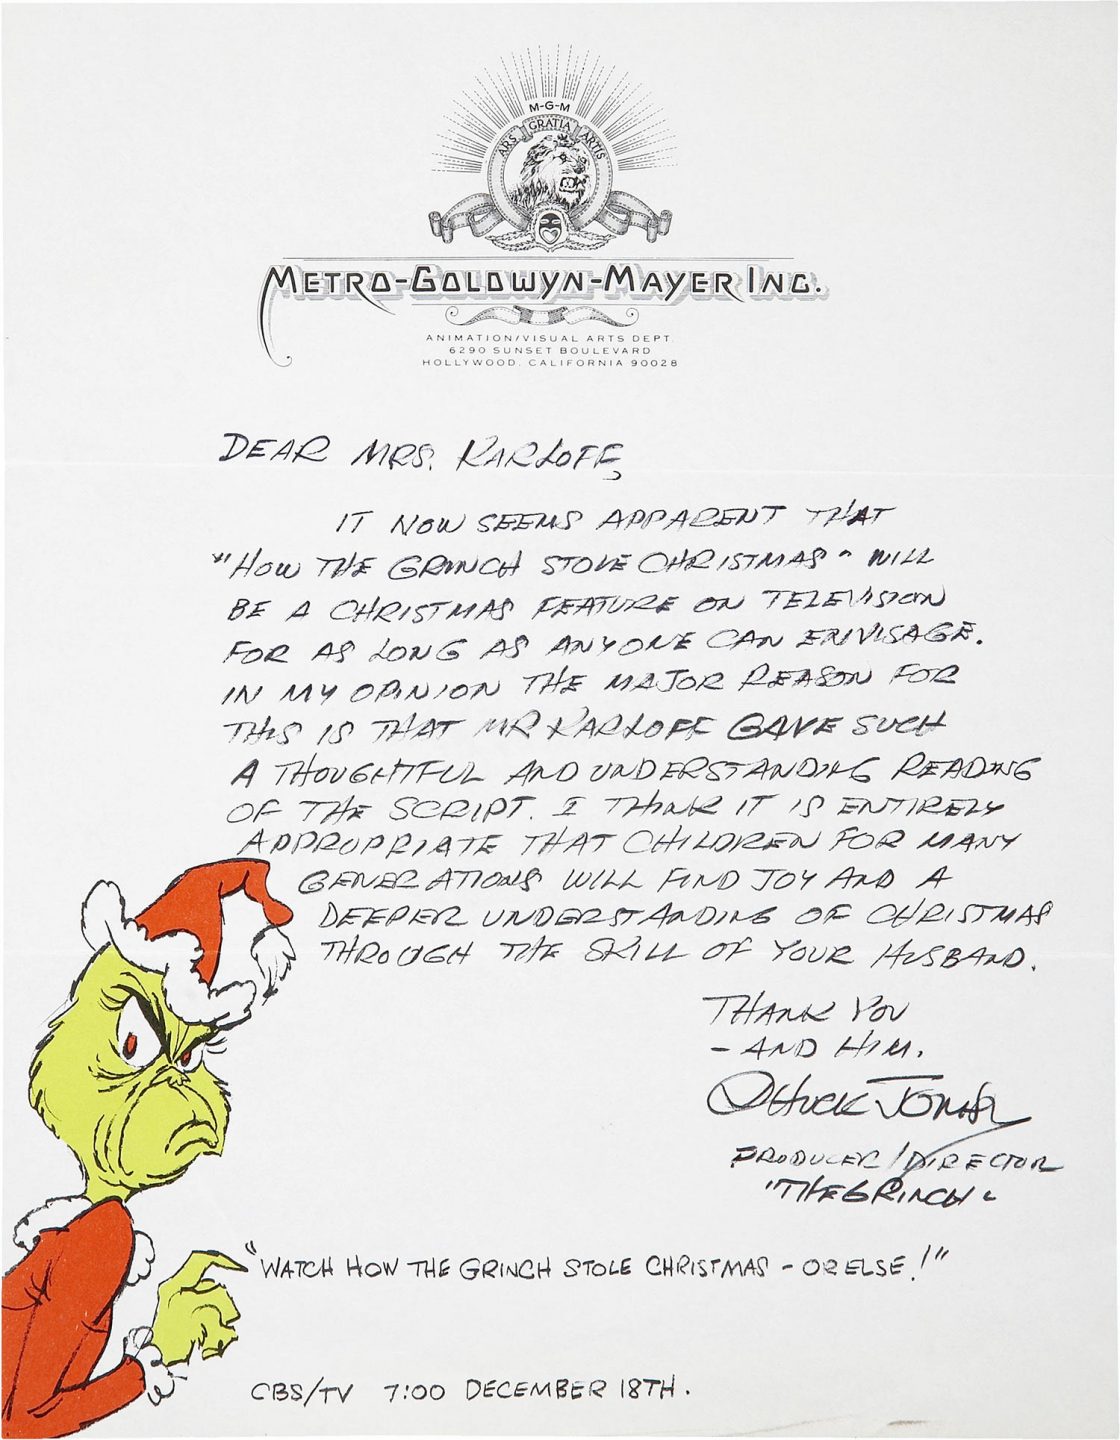 M-G-M
ARS GRATIA ARTIS
METRO-GOLDWYN-MAYER INC.
ANIMATION/VISUAL ARTS DEPT.
6290 SUNSET BOULEVARD
HOLLYWOOD, CALIFORNIA 90028
DEAR MRS. KARLOFF,
IT NOW SEEMS APPARENT THAT
"HOW THE GRINCH STOLE CHRISTMAS" WILL
BE A CHRISTMAS FEATURE ON TELEVISION
FOR AS LONG AS ANYONE CAN ENVISAGE.
IN MY OPINION THE MAJOR REASON FOR
THIS IS THAT MR KARLOFF GAVE SUCH
A THOUGHTFUL AND UNDERSTANDING READING
OF THE SCRIPT. I THINK IT IS ENTIRELY
APPROPRIATE THAT CHILDREN FOR MANY
GENERATIONS WILL FIND JOY AND A
DEEPER UNDERSTANDING OF CHRISTMAS
THROUGH THE SKILL OF YOUR HUSBAND.
THANK YOU
- AND HIM.
CHUCK JONES
PRODUCER/DIRECTOR
"THE GRINCH"
"WATCH HOW THE GRINCH STOLE CHRISTMAS - OR ELSE!"
CBS/TV 7:00 DECEMBER 18TH.